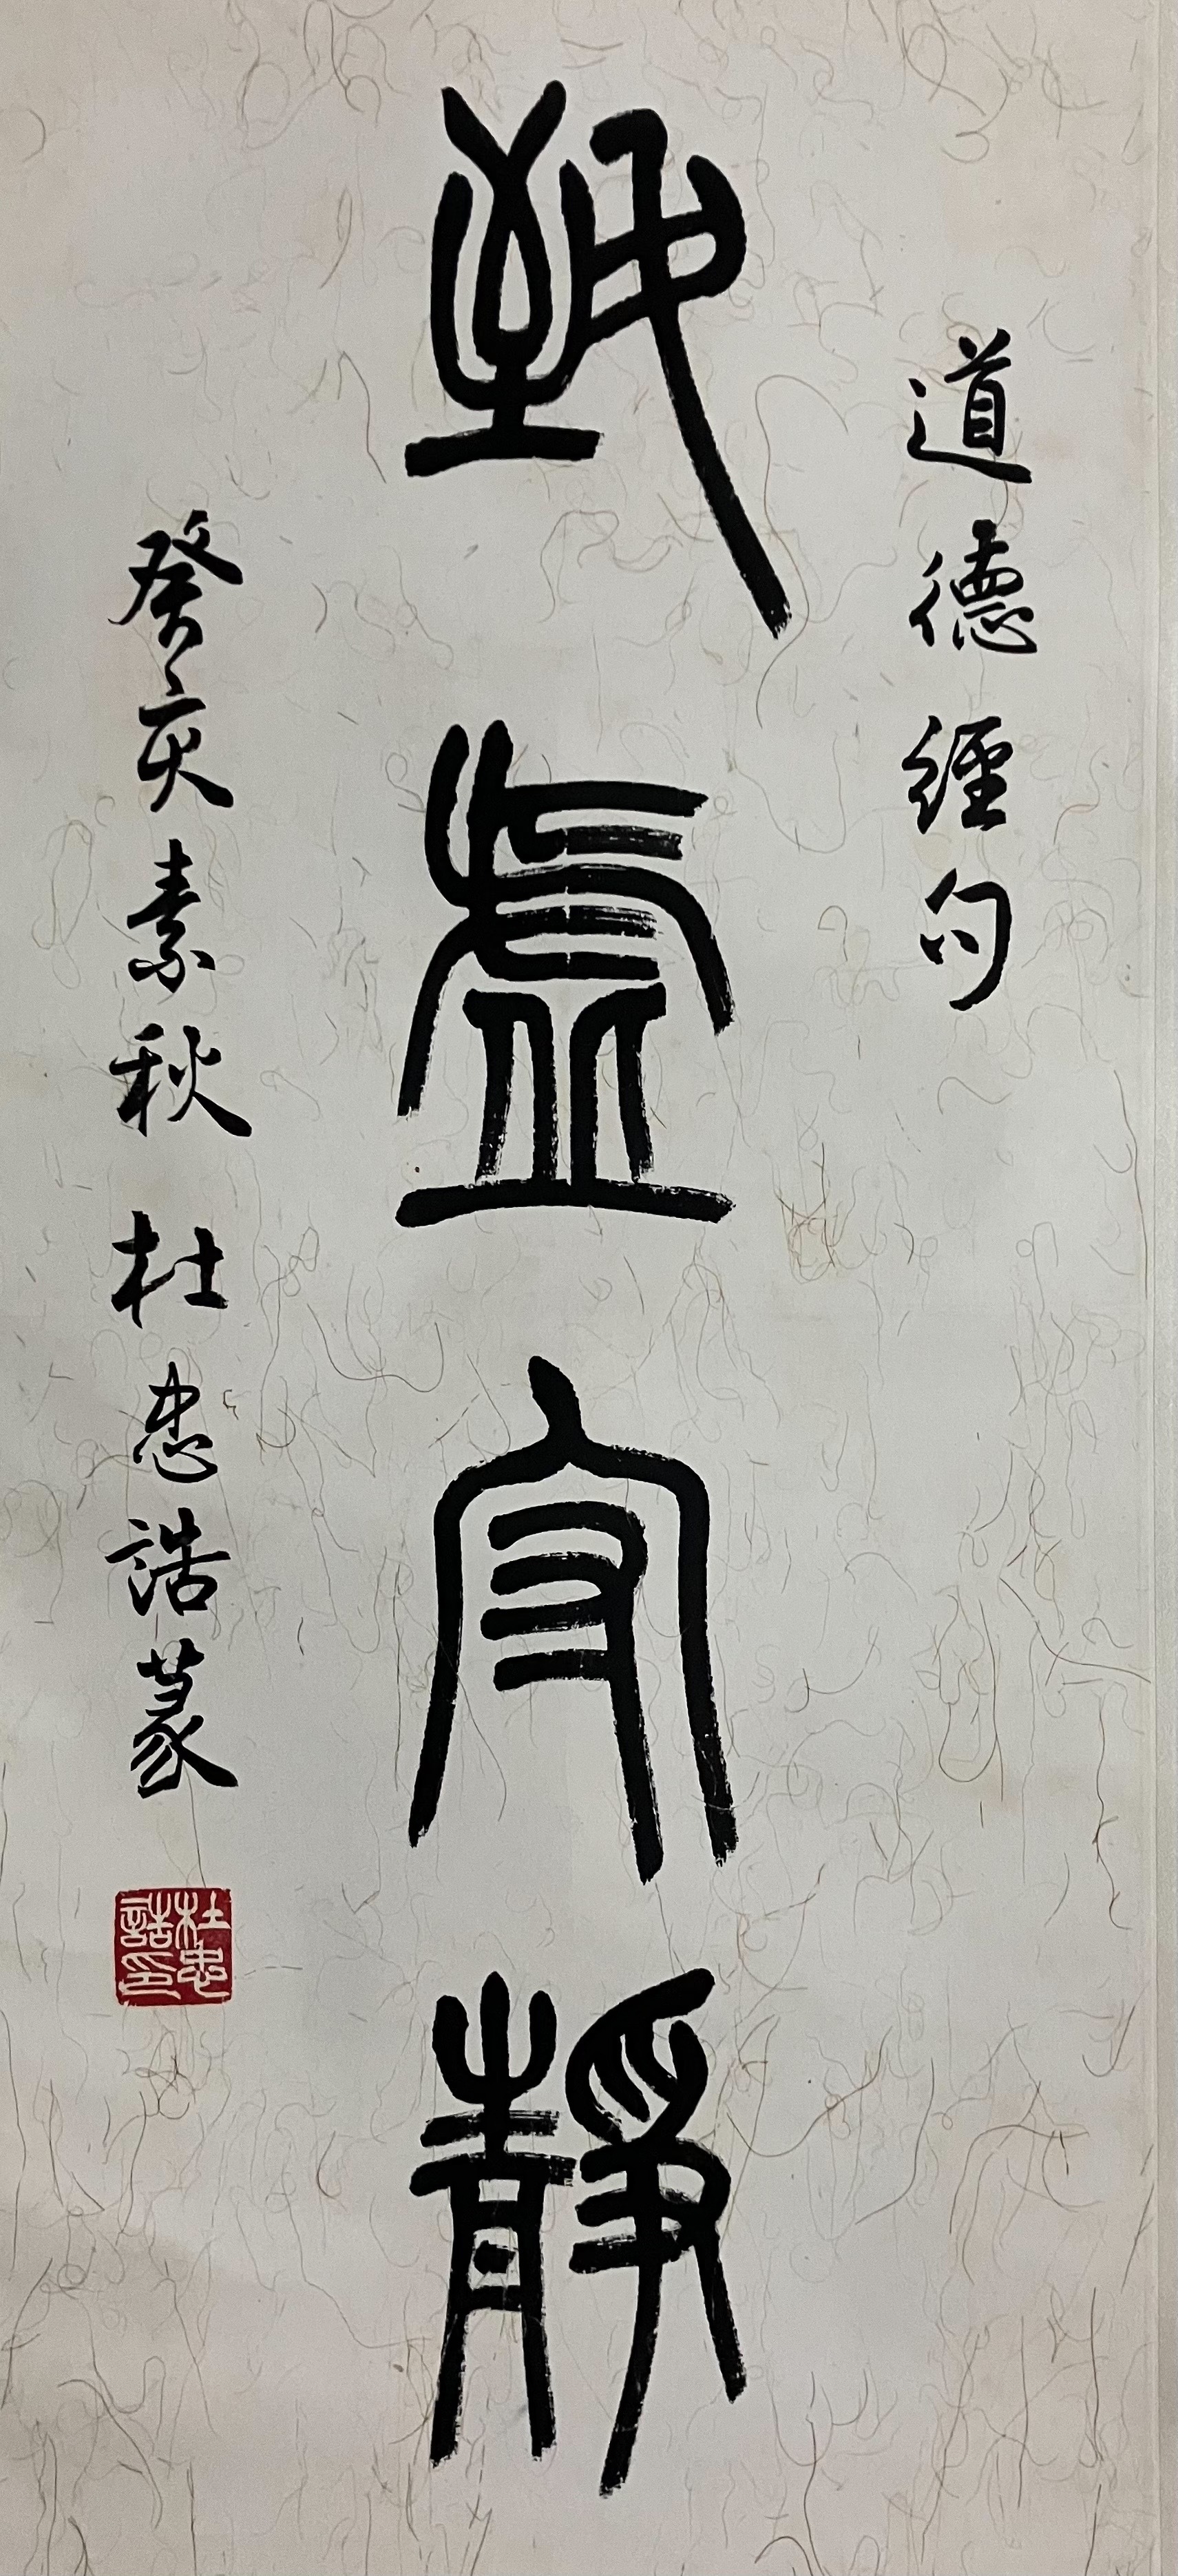 道德經句
致虛守靜
癸亥素秋 杜忠誥篆
杜忠
誥印